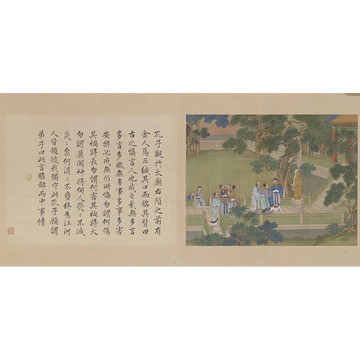 孔子觀於太廟右階之前有
金人焉三緘其口而銘其背曰
古之慎言人也戒之哉無多言
多言多敗無多事多事多害
安樂必戒無所行悔勿謂何傷
其禍將長勿謂何害其禍將大
勿謂莫聞神將伺人熒〻不滅
炎〻奈何涓〻不壅終為江河
人皆趨彼我獨守此孔子顧謂
弟子曰此言雖鄙而中事情